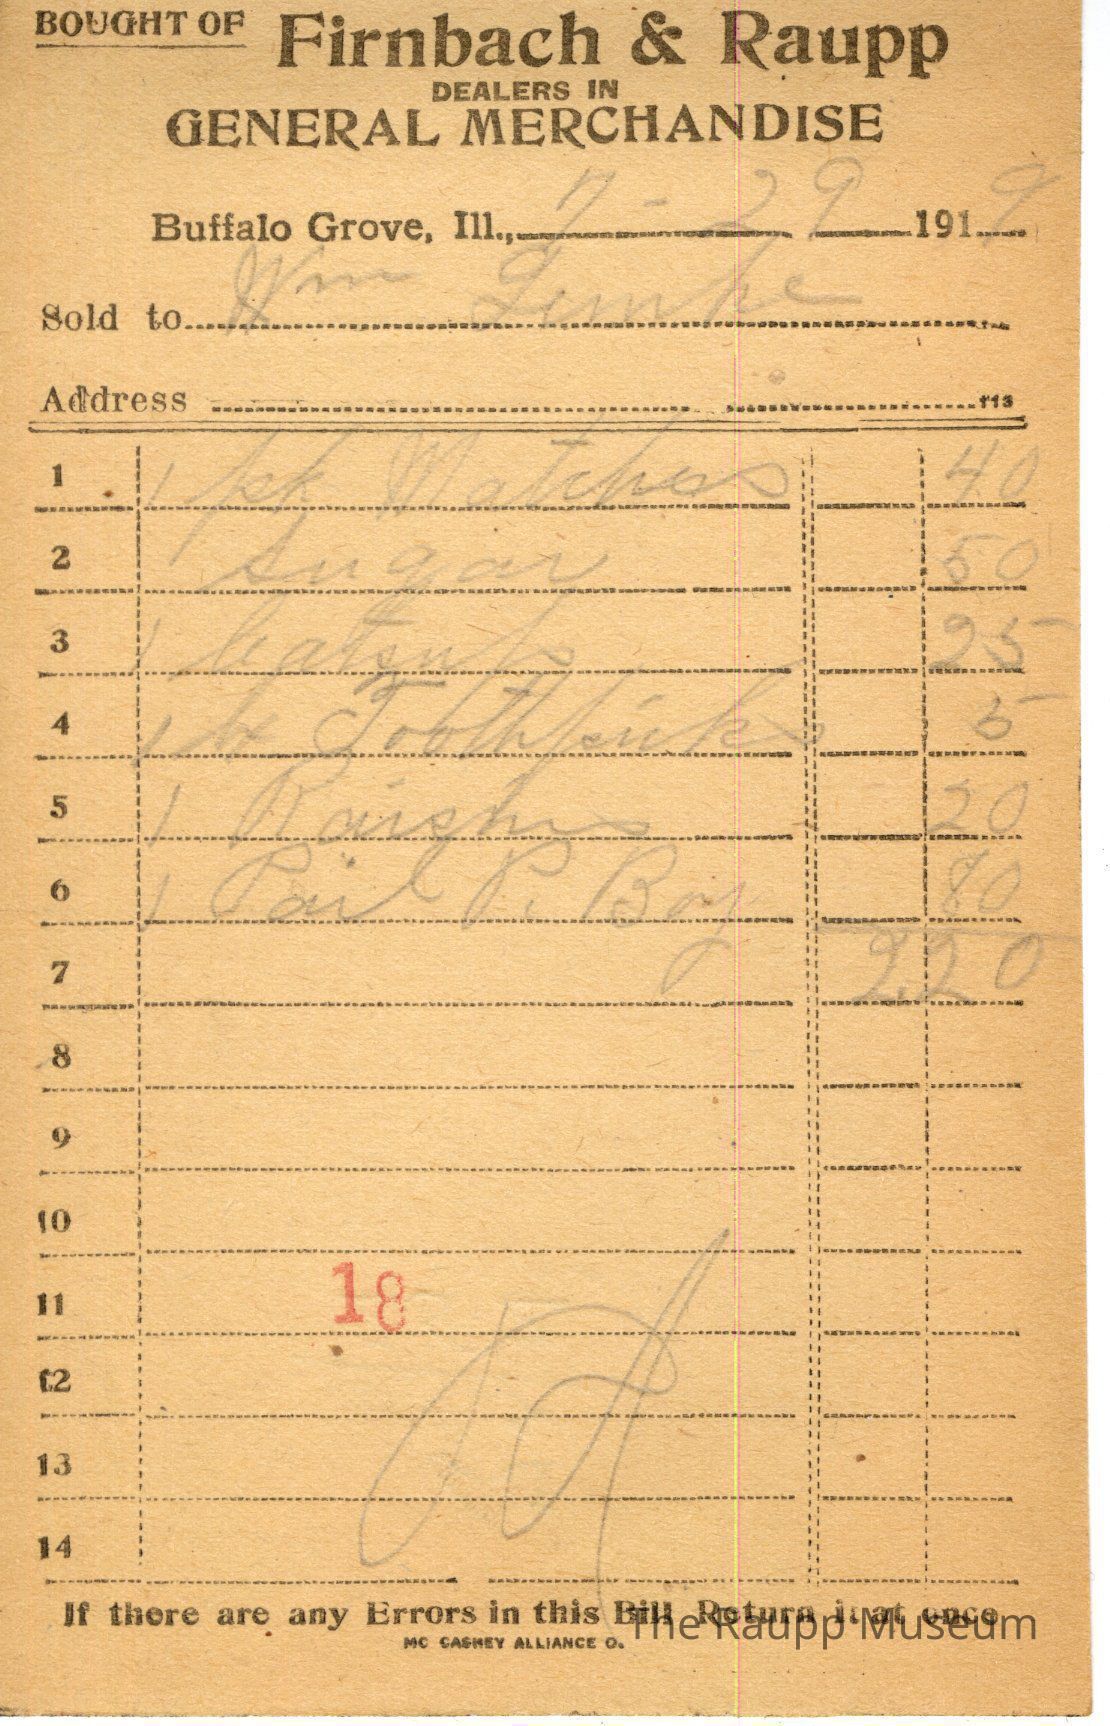 BOUGHT OF Firnbach & Raupp
DEALERS IN
GENERAL MERCHANDISE
Buffalo Grove, Ill., 7-29 1919
Sold to Wm
Address 113
1 1 pk Matches 40
2 1 Sugar 50
3 1 Catsup 25
4 1 bx Toothpicks 5
5 1 Raisins 20
6 1 Pail P. Boy 80
7 2.20
8
9
10
11 18
12
13
14
If there are any Errors in this Bill Return it at once
MC CASKEY ALLIANCE O.
The Raupp Museum